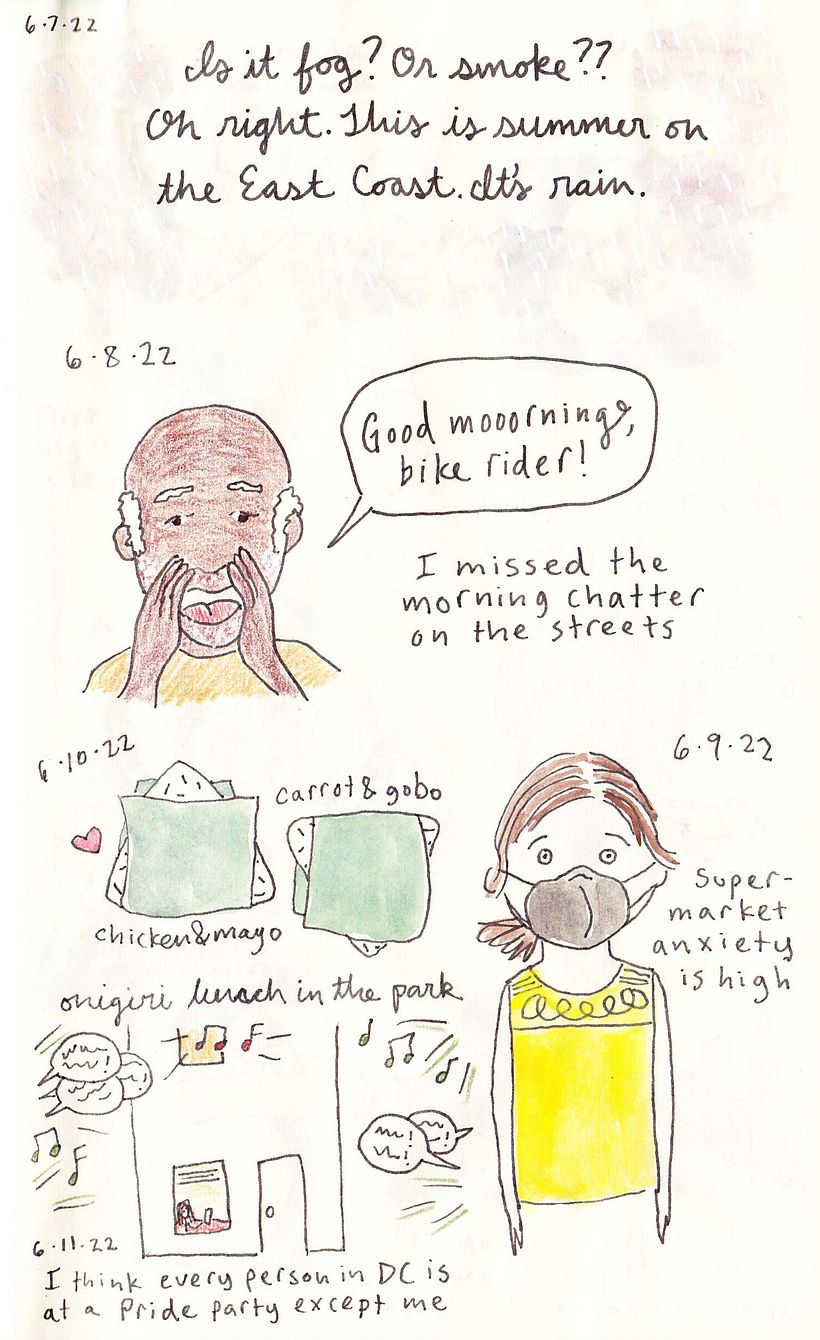 6.7.22
Is it fog? Or smoke??
Oh right. This is summer on
the East Coast. It's rain.
6.8.22
Good mooorning,
bike rider!
I missed the
morning chatter
on the streets
6.9.22
Super-
market
anxiety
is high
6.10.22
carrot & gobo
chicken & mayo
onigiri lunch in the park
6.11.22
I think every person in DC is
at a Pride party except me